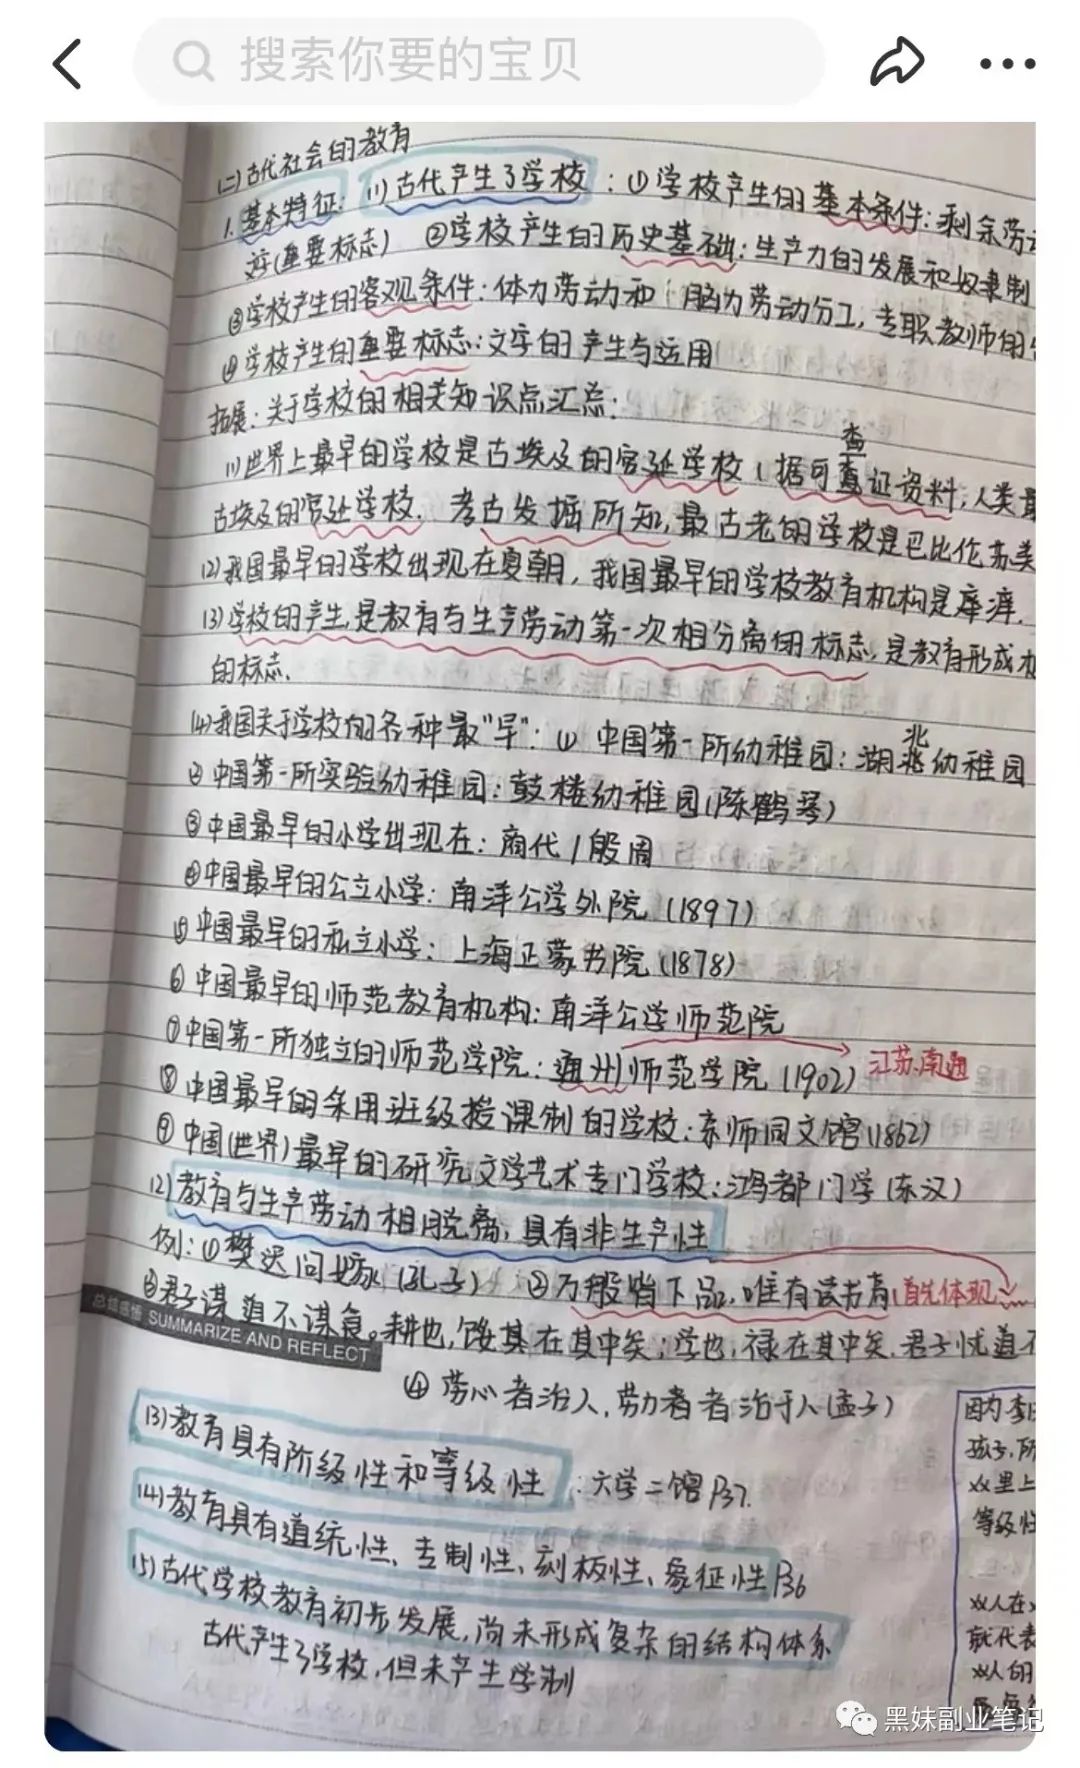 搜索你要的宝贝
(二)古代社会的教育
1.基本特征:(1)古代产生了学校:①学校产生的基本条件:剩余劳动
(重要标志) ②学校产生的历史基础:生产力的发展和奴隶制
③学校产生的客观条件:体力劳动和脑力劳动分工,专职教师的
④学校产生的重要标志:文字的产生与运用
拓展:关于学校的相关知识点汇总:
查
(1)世界上最早的学校是古埃及的宫廷学校(据可查证资料,人类最
古埃及的宫廷学校.考古发掘所知,最古老的学校是巴比伦苏美
(2)我国最早的学校出现在夏朝,我国最早的学校教育机构是庠.
(3)学校的产生,是教育与生产劳动第一次相分离的标志,是教育形成
的标志.
北
(4)我国关于学校的各种最"早":①中国第一所幼稚园:湖北幼稚园
②中国第一所实验幼稚园:鼓楼幼稚园(陈鹤琴)
③中国最早的小学出现在:商代/殷周
④中国最早的公立小学:南洋公学外院(1897)
⑤中国最早的私立小学:上海正蒙书院(1878)
⑥中国最早的师范教育机构:南洋公学师范院
⑦中国第一所独立的师范学院:通州师范学院(1902) 江苏.南通
⑧中国最早的采用班级授课制的学校:京师同文馆(1862)
⑨中国(世界)最早的研究文学艺术专门学校:鸿都门学(东汉)
(2)教育与生产劳动相脱离,具有非生产性
例:①樊迟问稼(孔子) ②万般皆下品,唯有读书高(首先体现)
③君子谋道不谋食。耕也,馁其在其中矣;学也,禄在其中矣.君子忧道不
总结感悟 SUMMARIZE AND REFLECT
④劳心者治人,劳力者者治于人(孟子)
(3)教育具有阶级性和等级性:六学二馆P37.
(4)教育具有道统性、专制性、刻板性、象征性P36
(5)古代学校教育初步发展,尚未形成复杂的结构体系
古代产生了学校,但未产生学制
因为李
孩子,所
xx里上
等级性
xx人在
就代表
xx人的
黑妹副业笔记